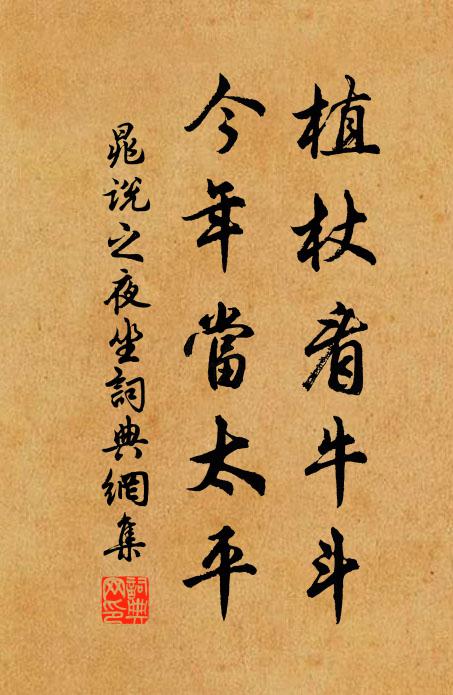 植杖看牛斗
今年當太平
晁说之夜坐詞典網集
詞典网印